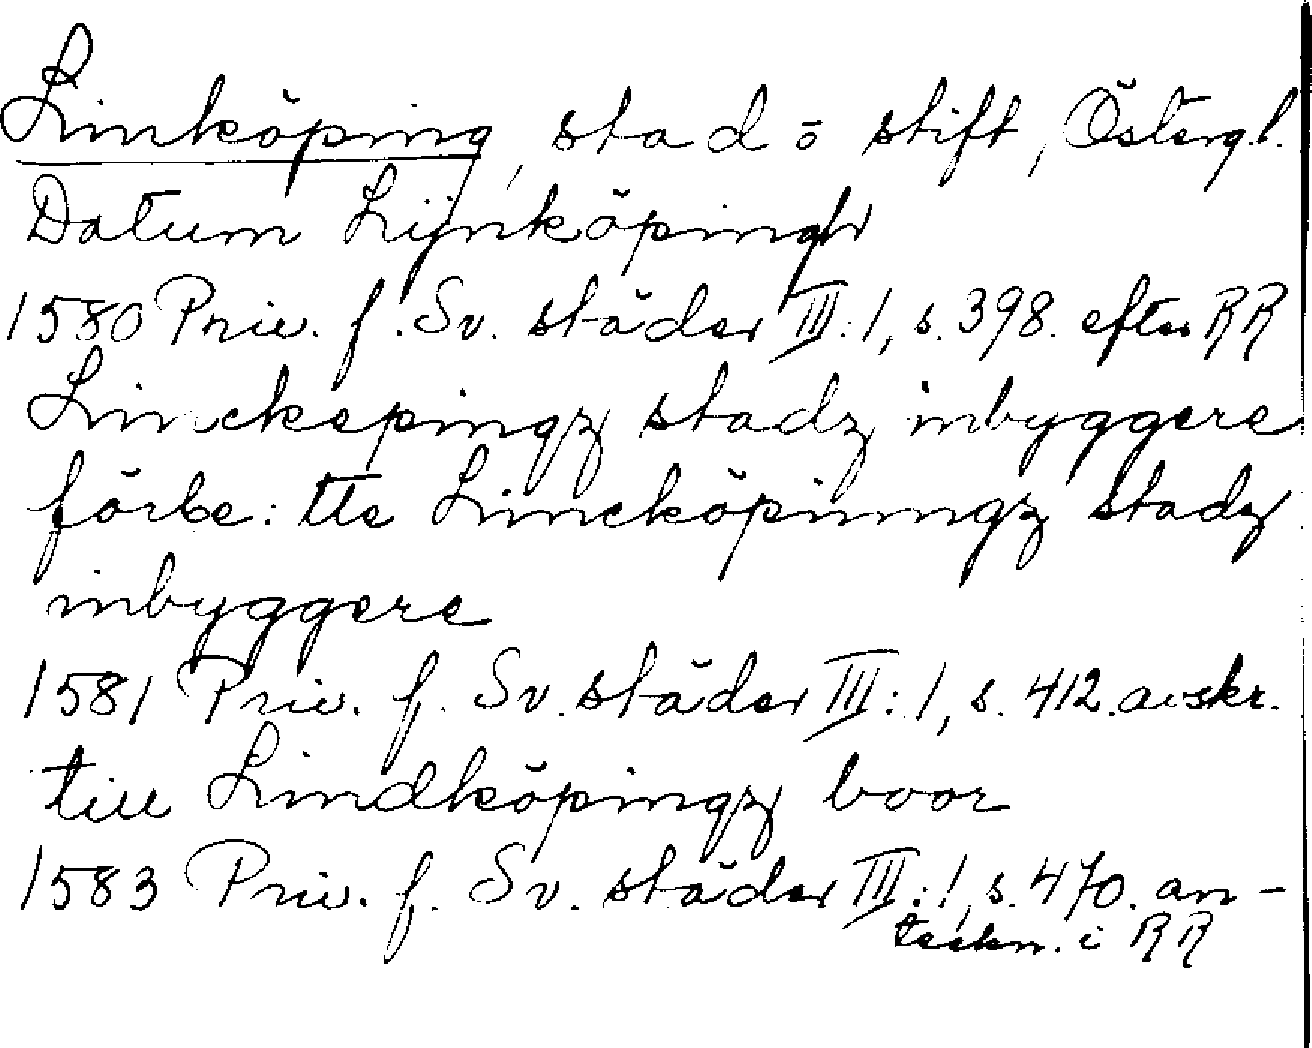 Linköping, stad o stift, Östergl.
Datum Lijnköpingh
1580 Priv. f. Sv. städer III:1, s. 398. efter RR
Linckepingz stadz inbyggere
förbe:tte Lincköpinngz stadz
inbyggere
1581 Priv. f. Sv. städer III:1, s. 412. avskr.
till Lindköpingz boor
1583 Priv. f. Sv. städer III:1, s. 470. an-
teckn. i RR